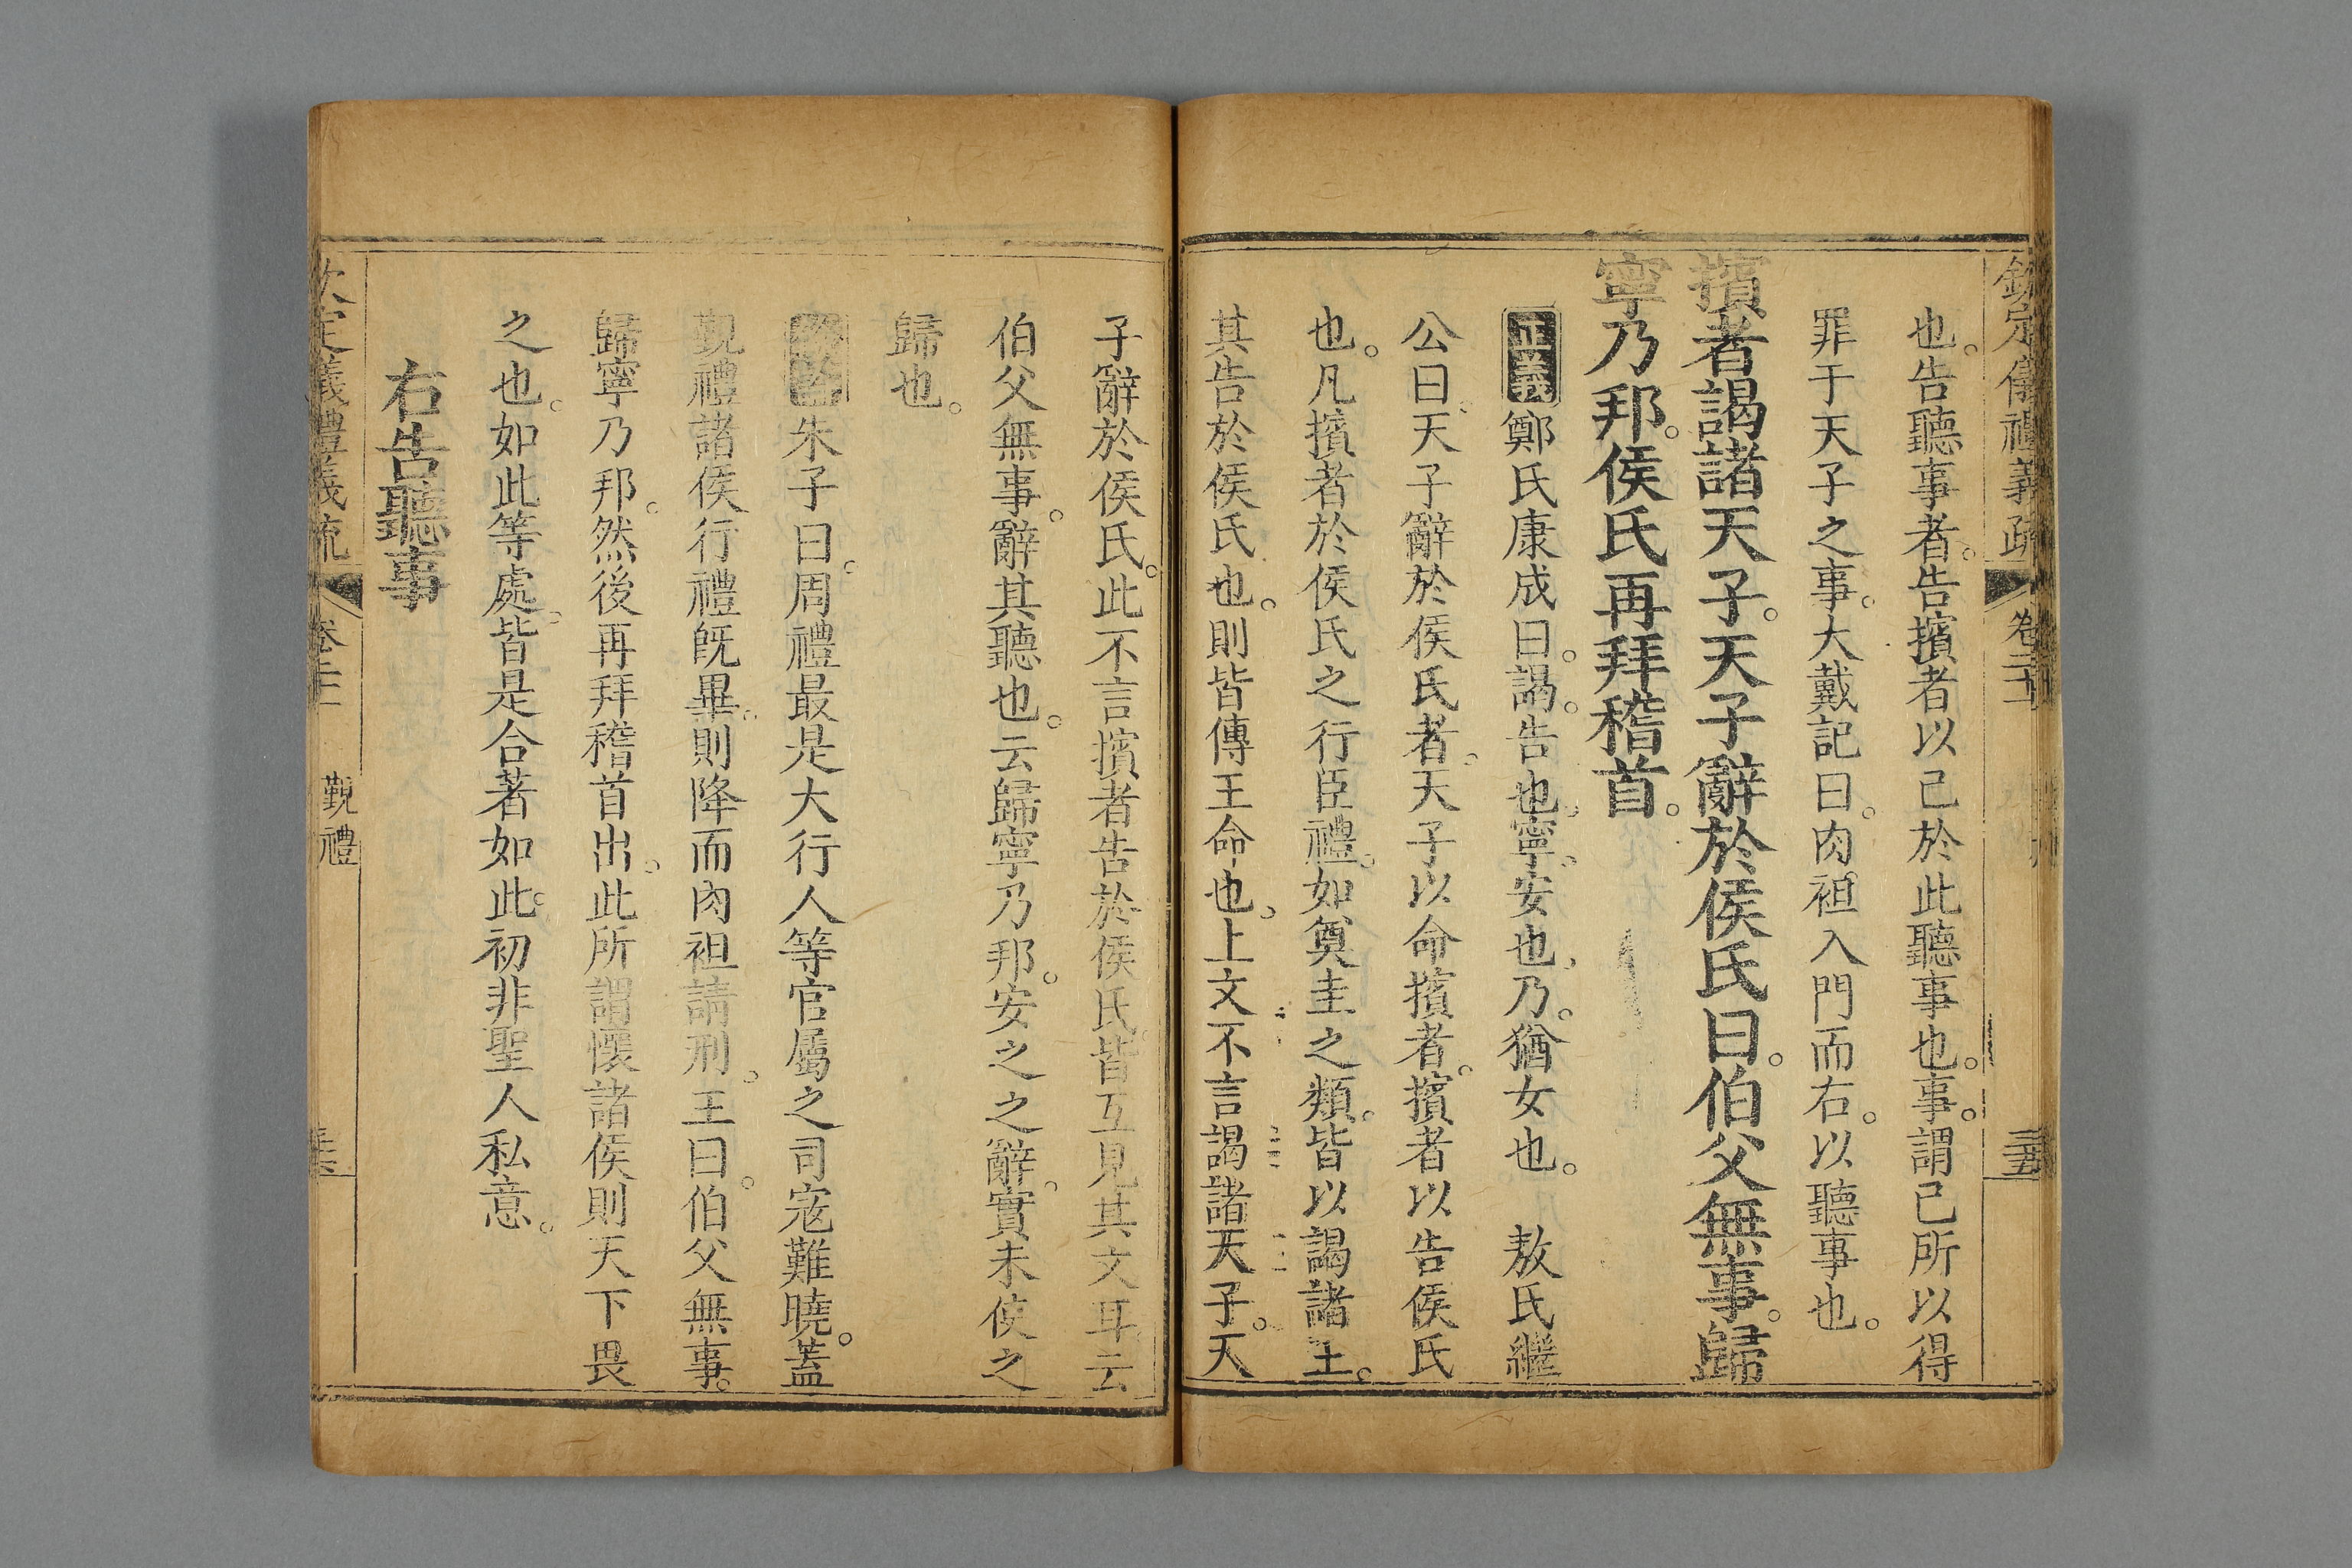 欽定儀禮義疏 卷二十
也。告聽事者。告擯者以己於此聽事也。事。謂己所以得
罪于天子之事。大戴記曰。肉袒入門而右。以聽事也。
擯者謁諸天子。天子辭於侯氏曰。伯父無事。歸
寧乃邦。侯氏再拜稽首。
正義鄭氏康成曰。謁。告也。寧。安也。乃。猶女也。 敖氏繼
公曰。天子辭於侯氏者。天子以命擯者。擯者以告侯氏
也。凡擯者於侯氏之行臣禮。如奠圭之類。皆以謁諸王。
其告於侯氏也。則皆傳王命也。上文不言謁諸天子。天
子辭於侯氏。此不言擯者告於侯氏。皆互見其文耳。云
伯父無事。辭其聽也。云歸寧乃邦。安之之辭。實未使之
歸也。
朱子曰。周禮最是大行人等官屬之司寇難曉。蓋
覲禮諸侯行禮旣畢。則降而肉袒請刑。王曰。伯父無事。
歸寧乃邦。然後再拜稽首出。此所謂懷諸侯則天下畏
之也。如此等處。皆是合著如此。初非聖人私意。
右告聽事
定儀禮義疏 覲禮